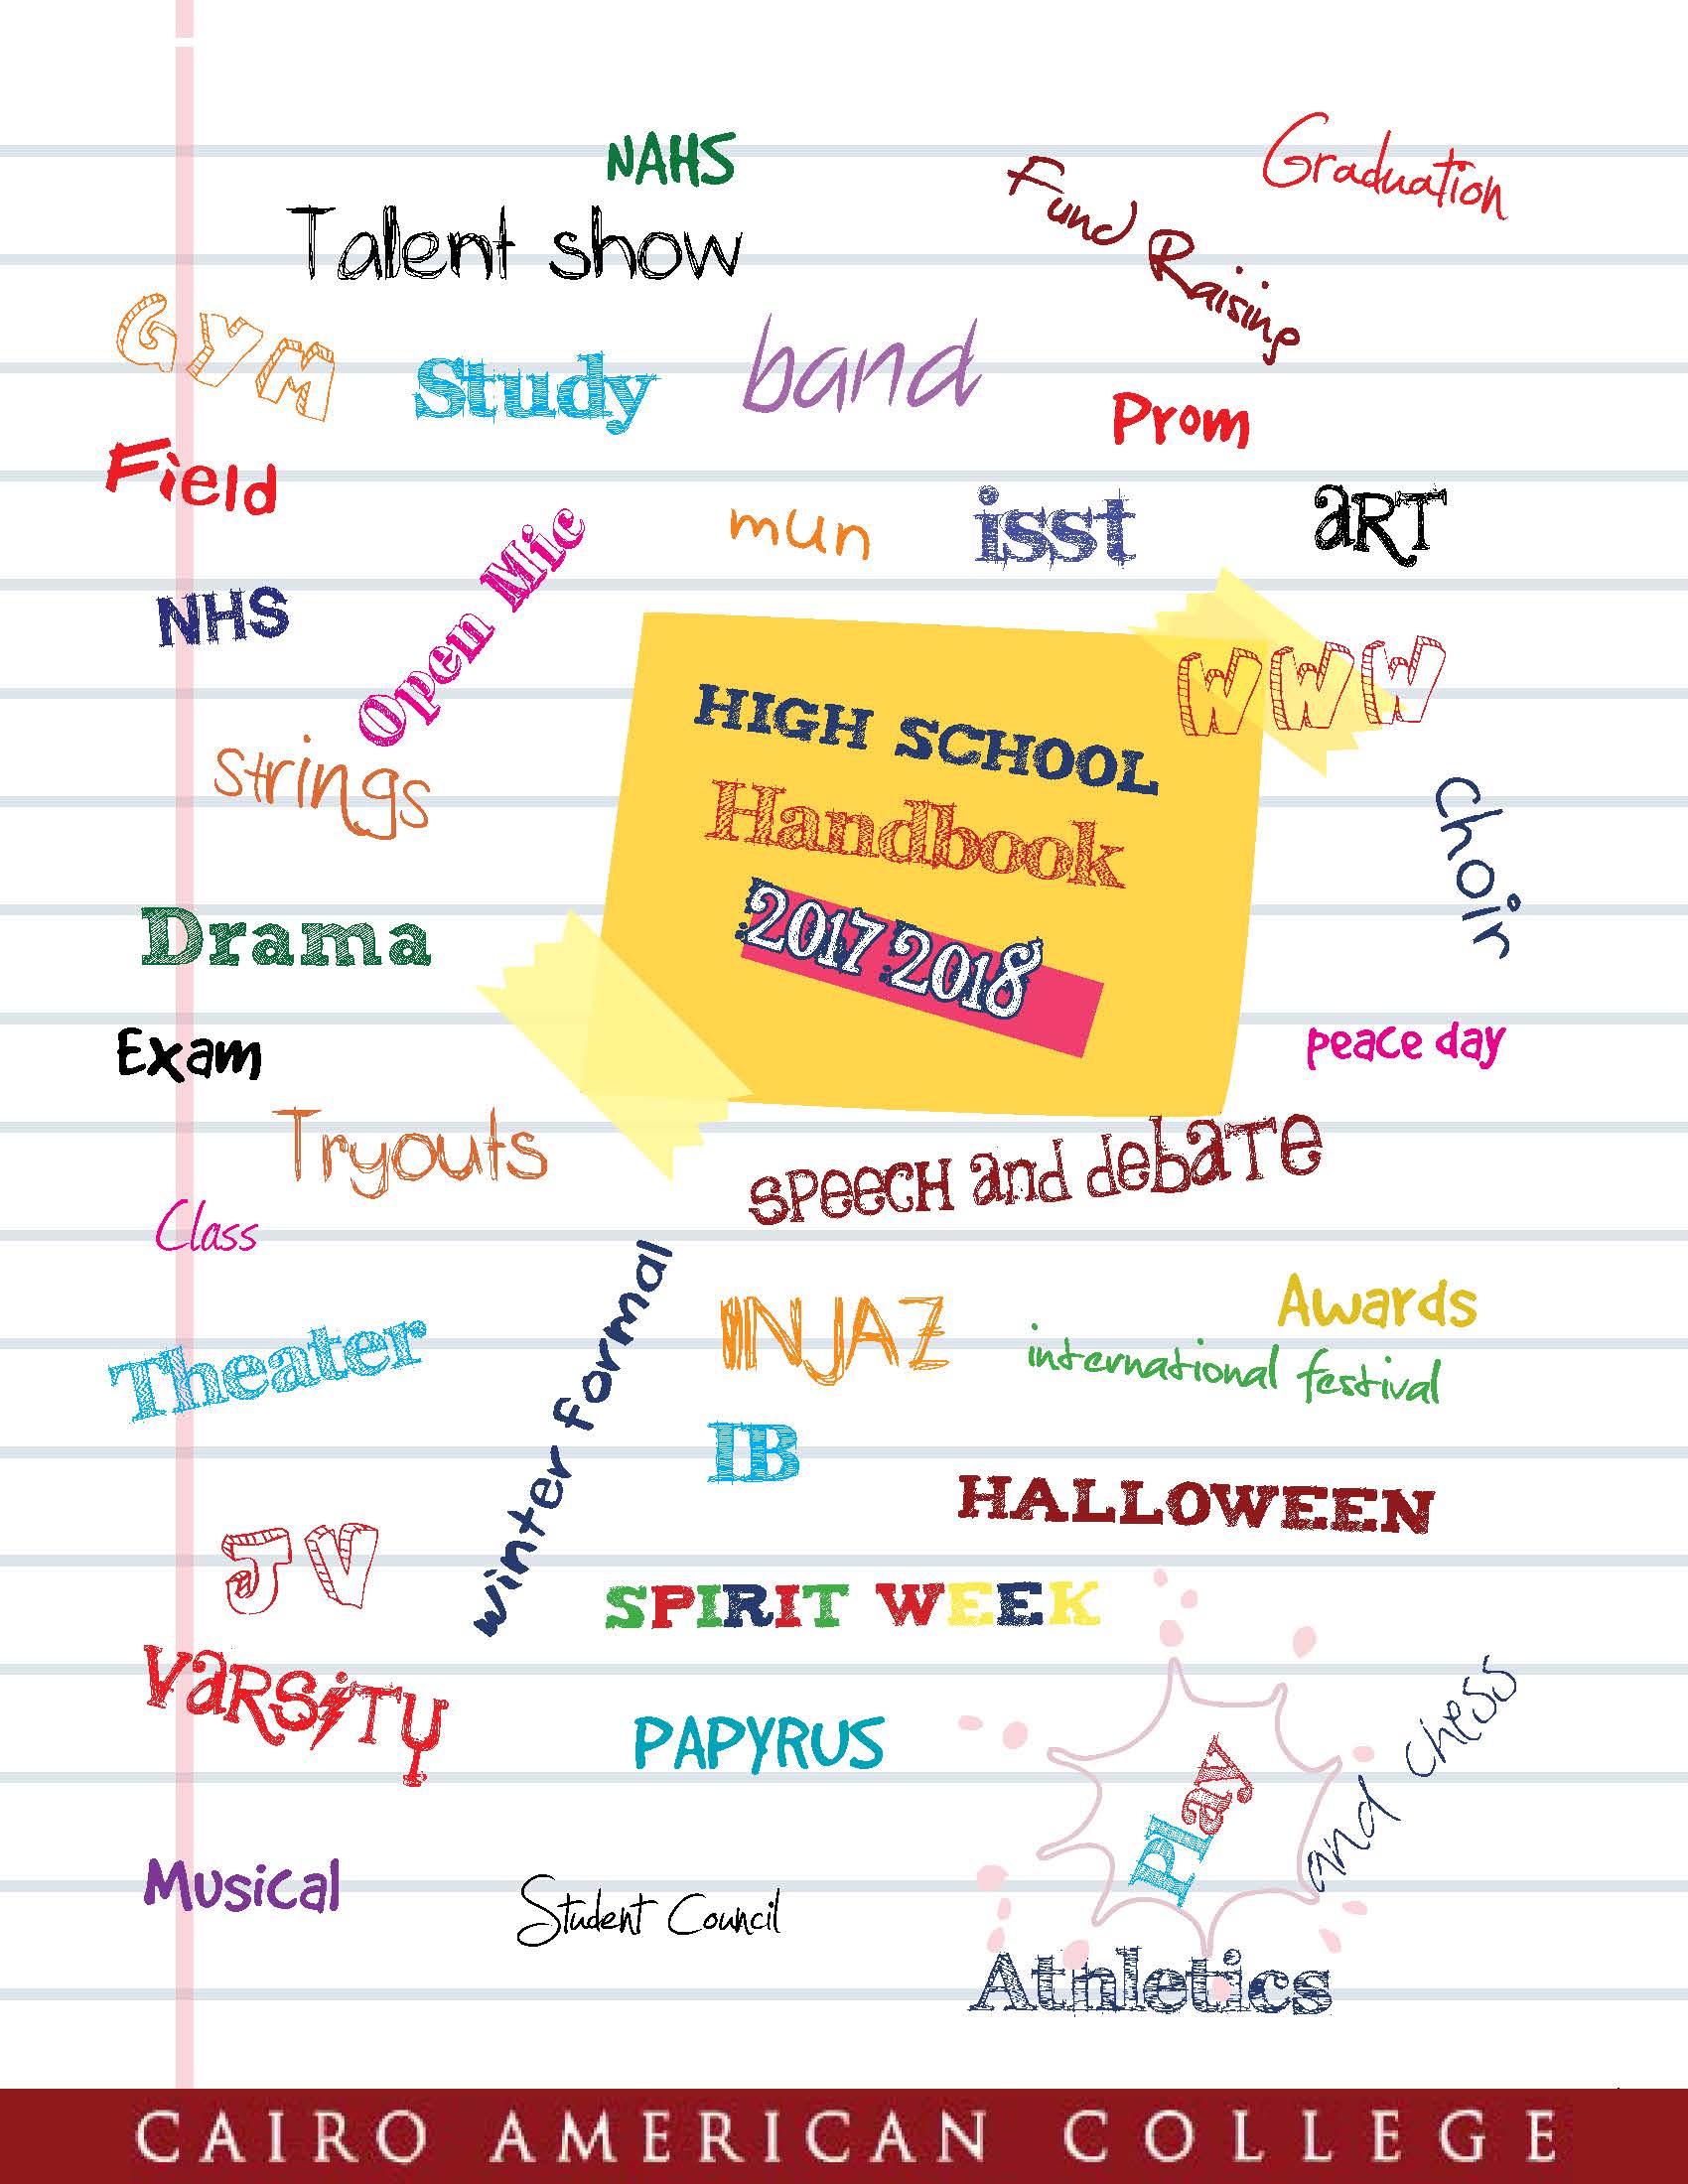 NAHS
Graduation
Fund Raising
Talent show
GYM
Study
band
Prom
Field
Open Mic
mun
isst
aRT
NHS
WWW
HIGH SCHOOL
Handbook
2017 2018
strings
choir
Drama
Exam
peace day
Tryouts
SPeeCH and debaTe
Class
winter formal
INJAZ
Awards
international festival
Theater
IB
HALLOWEEN
JV
SPIRIT WEEK
VaRSiTy
PAPYRUS
Play
and chess
Musical
Student Council
Athletics
CAIRO AMERICAN COLLEGE